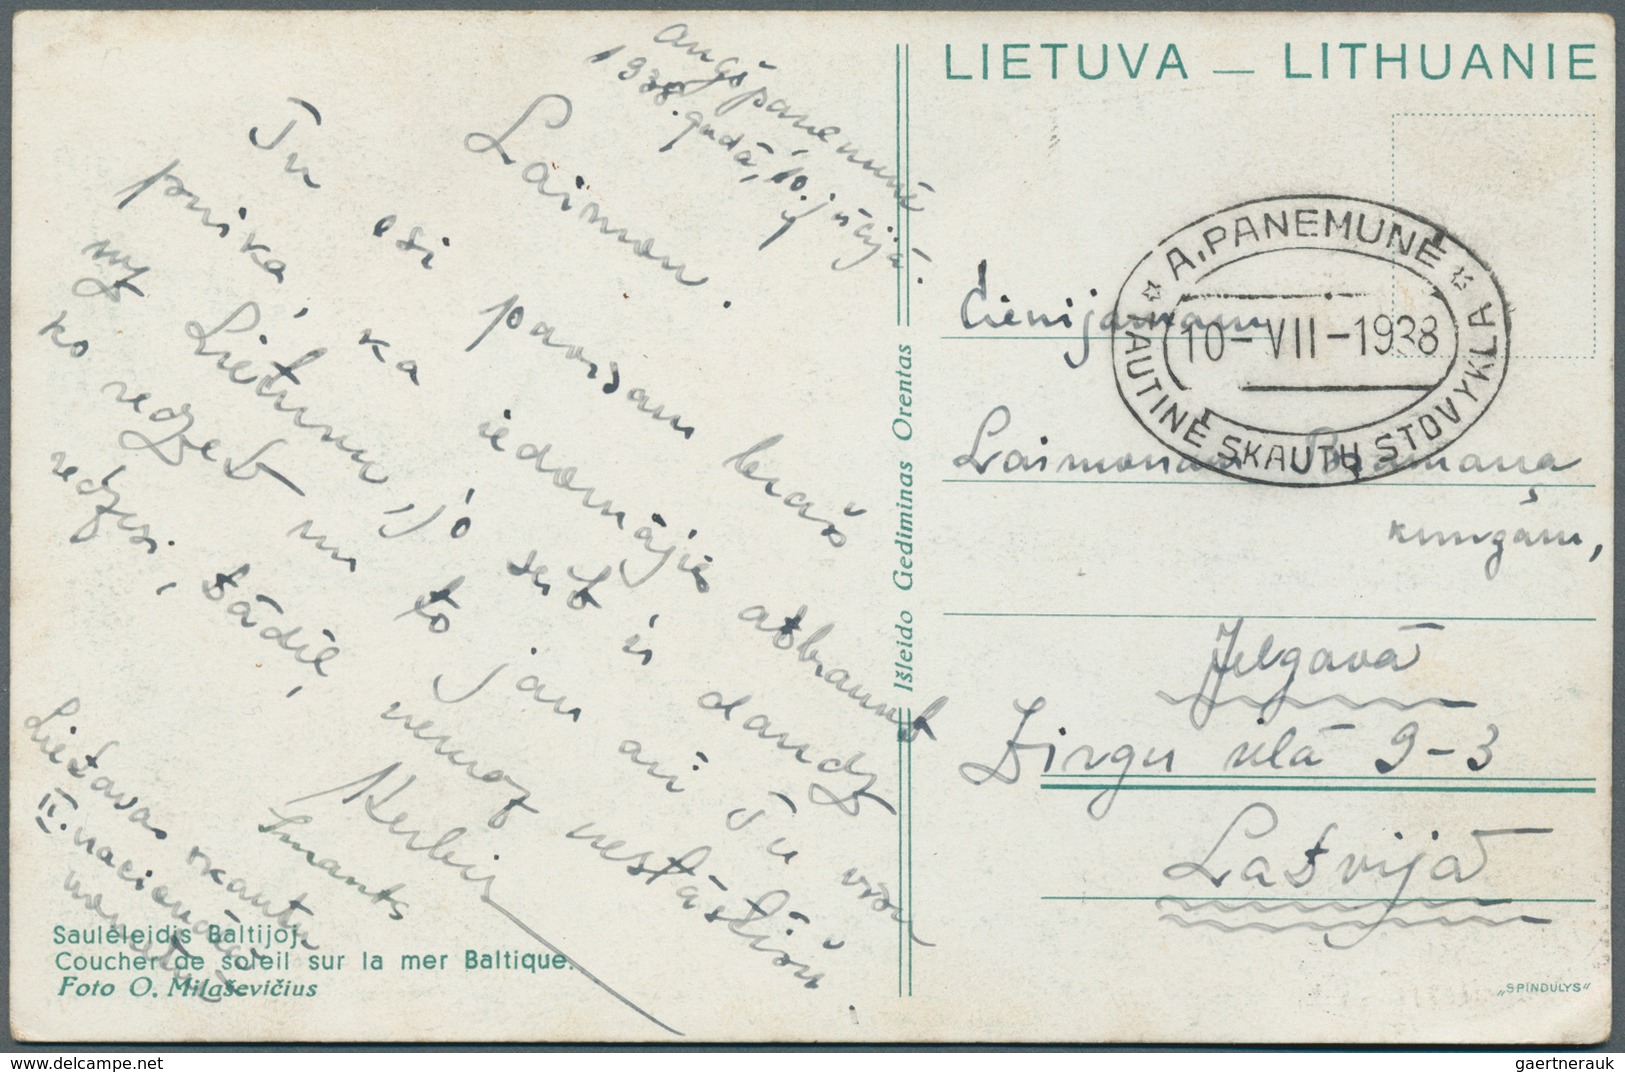 LIETUVA — LITHUANIE
Augšpanemunē
1938. gadā, 10. jūlijā.
Laimon.
Tu esi pavisam brašs
puika, ka iedomājies atbraukt
uz Lietuvu, jo šeit ir daudz
ko redzet un to jau arī Tu visu
redzēsi, tādēļ nemaz nestāstīšu.
Smants
Lietavas skautu
II. nacionālā
Cienijamam
Laimonam
kungam,
Jelgavā
Zirgu ielā 9-3
Latvijā
A. PANEMUNĖ
10-VII-1938
TAUTINĖ SKAUTŲ STOVYKLA
Išleido Gediminas Orentas
Saulėleidis Baltijoj.
Coucher de soleil sur la mer Baltique.
Foto O. Milaševičius
„SPINDULYS“
www.delcampe.net
gaertnerauk